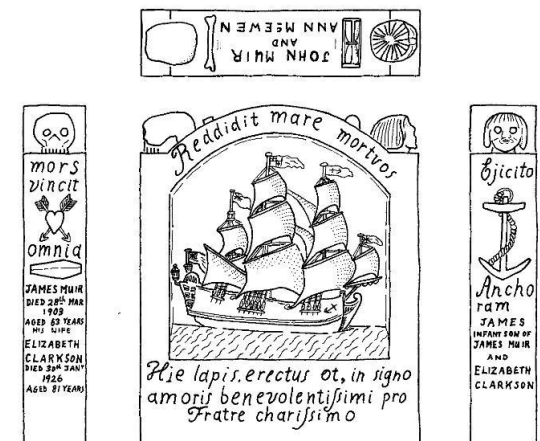 JOHN MUIR
AND
ANN McEWEN
mors
vincit
omnia
JAMES MUIR
DIED 28th MAR
1903
AGED 63 YEARS
HIS WIFE
ELIZABETH
CLARKSON
DIED 30th JANY
1926
AGED 81 YEARS
Reddidit mare mortvos
Hic lapis. erectus ot, in signo
amoris benevolentiſsimi pro
Fratre chariſsimo
Ejicito
Ancho
ram
JAMES
INFANT SON OF
JAMES MUIR
AND
ELIZABETH
CLARKSON